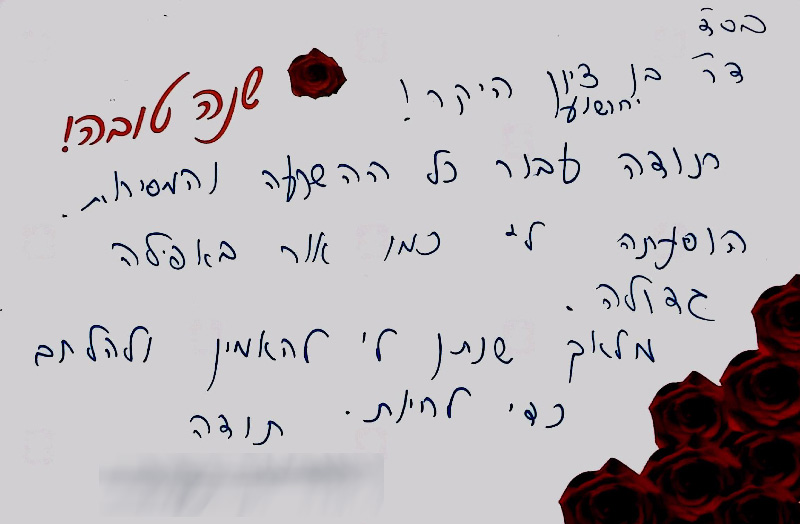 בסד
דר בן ציון היקר!
יהושוע
שנה טובה!
תודה עבור כל ההשקעה והמסירות.
הופעתה לי כמו אור באפילה
גדולה.
מלאך שנתן לי להאמין ולהלחם
כדי לחיות. תודה